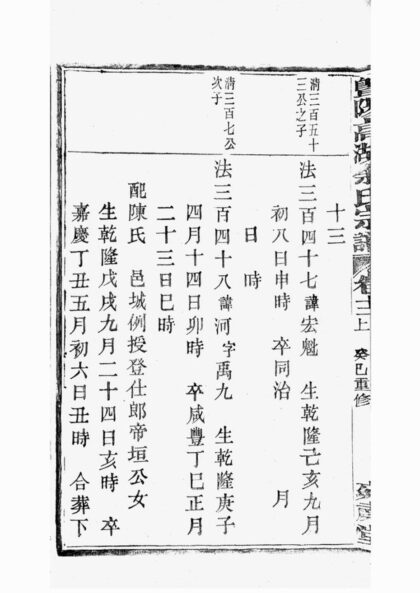 暨陽高湖余氏宗譜 卷十二上 癸巳重修
十三
清三百五十
三公之子
法三百四十七諱宏魁 生乾隆己亥九月
初八日申時 卒同治 月
日時
清三百七公
次子
法三百四十八諱河字禹九 生乾隆庚子
四月十四日卯時 卒咸豐丁巳正月
二十三日巳時
配陳氏 邑城例授登仕郎帝垣公女
生乾隆戊戌九月二十四日亥時 卒
嘉慶丁丑五月初六日丑時 合葬下